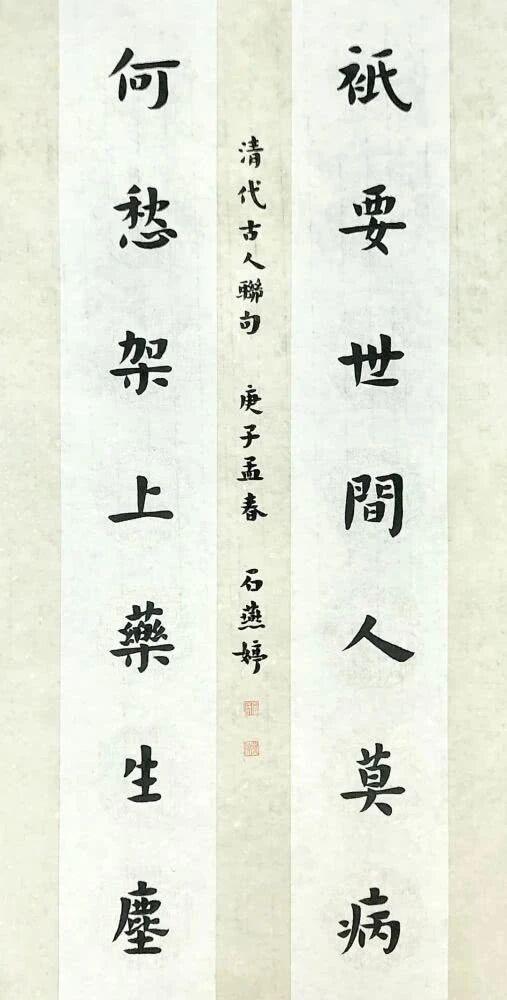 祇要世間人莫病
何愁架上藥生塵
清代古人聯句 庚子孟春 石燕婷